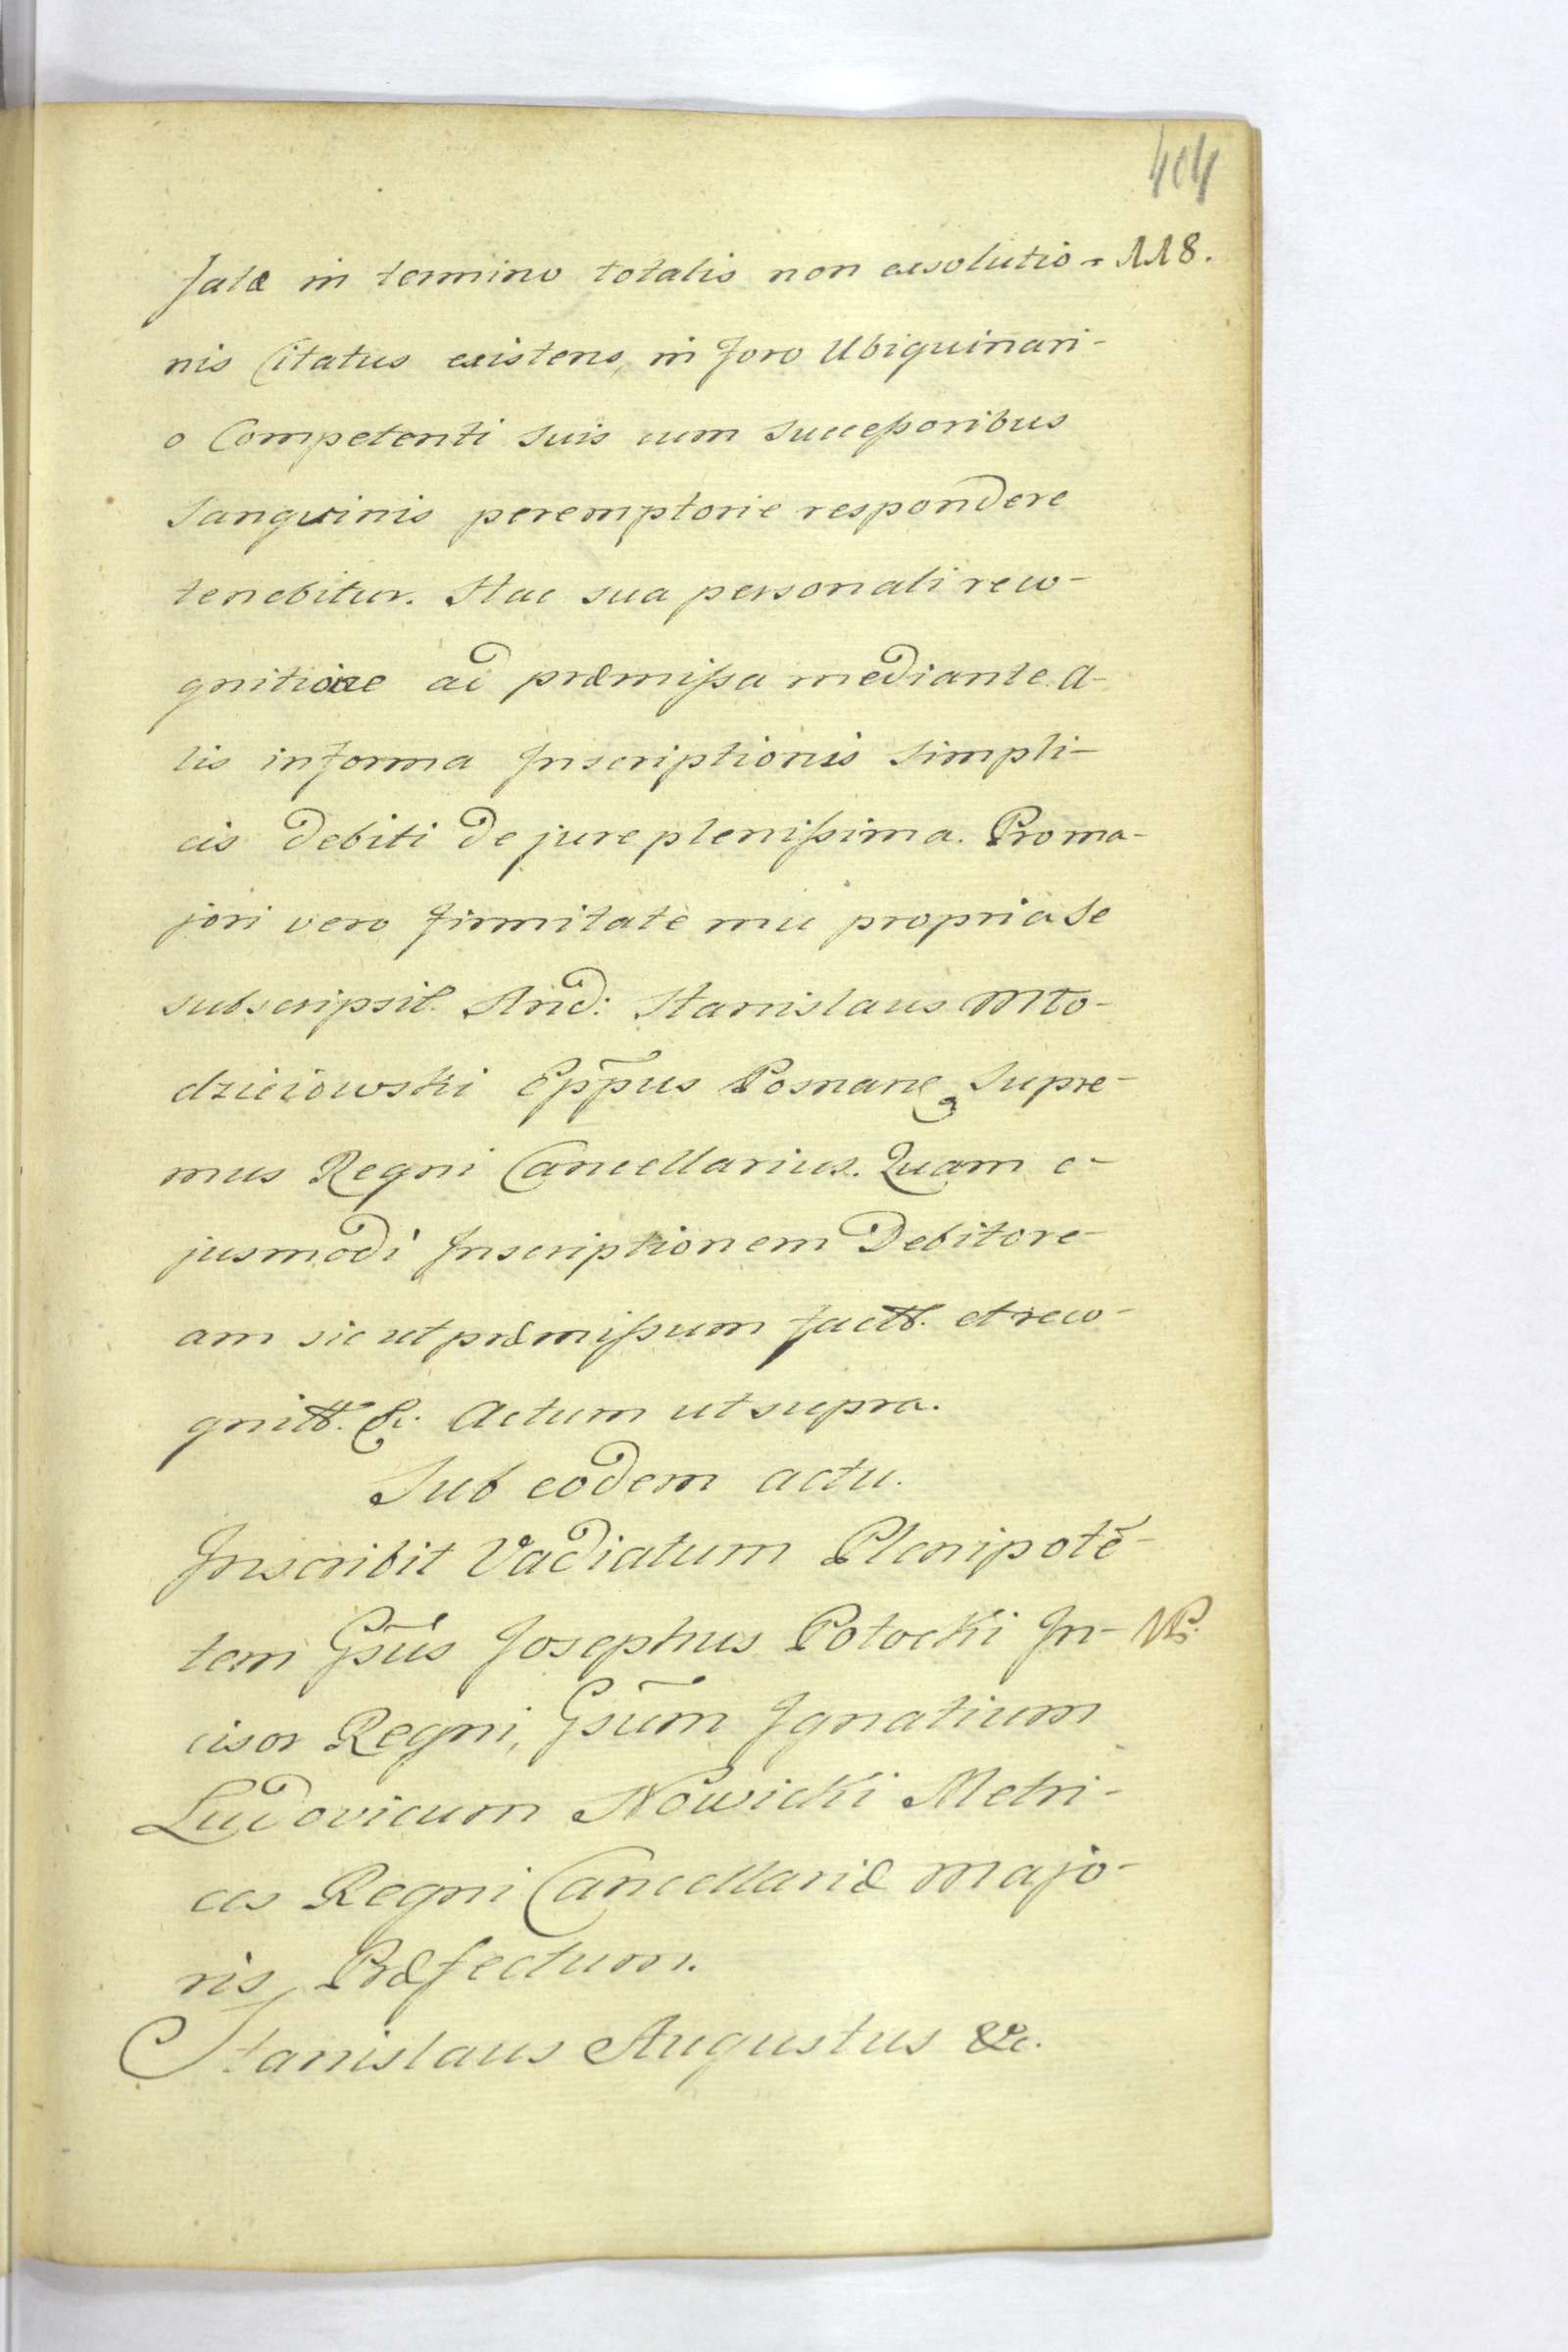 404
118.
fatæ in termino totalis non exsolutio-
nis Citatus existens, in foro Ubiquinari-
o Competenti suis cum Successoribus
Sangvinis peremptorie respondere
tenebitur. Hac sua personali reco-
gnitione ad præmissa mediante. A-
lis in forma Inscriptionis Simpli-
cis Debiti De jure plenissima. Pro ma-
jori vero firmitate mu propria se
subscripsit. And: Stanislaus Mło-
dzieiowski Epp̃us Posnane Supre-
mus Regni Cancellarius. Quam e-
jusmodi Inscriptionem Debitore-
am sic ut præmissum factt. et reco-
gnitt. &c. Actum ut supra.
Sub eodem actu.
Inscribit Vadiatum Plenipotẽ-
tem Gsũs Josephus Potocki In-
NB.
cisor Regni, Gsũm Ignatium
Ludovicum Nowicki Metri-
ces Regni Cancellariæ Majo-
ris Præfectum.
Stanislaus Augustus &c.